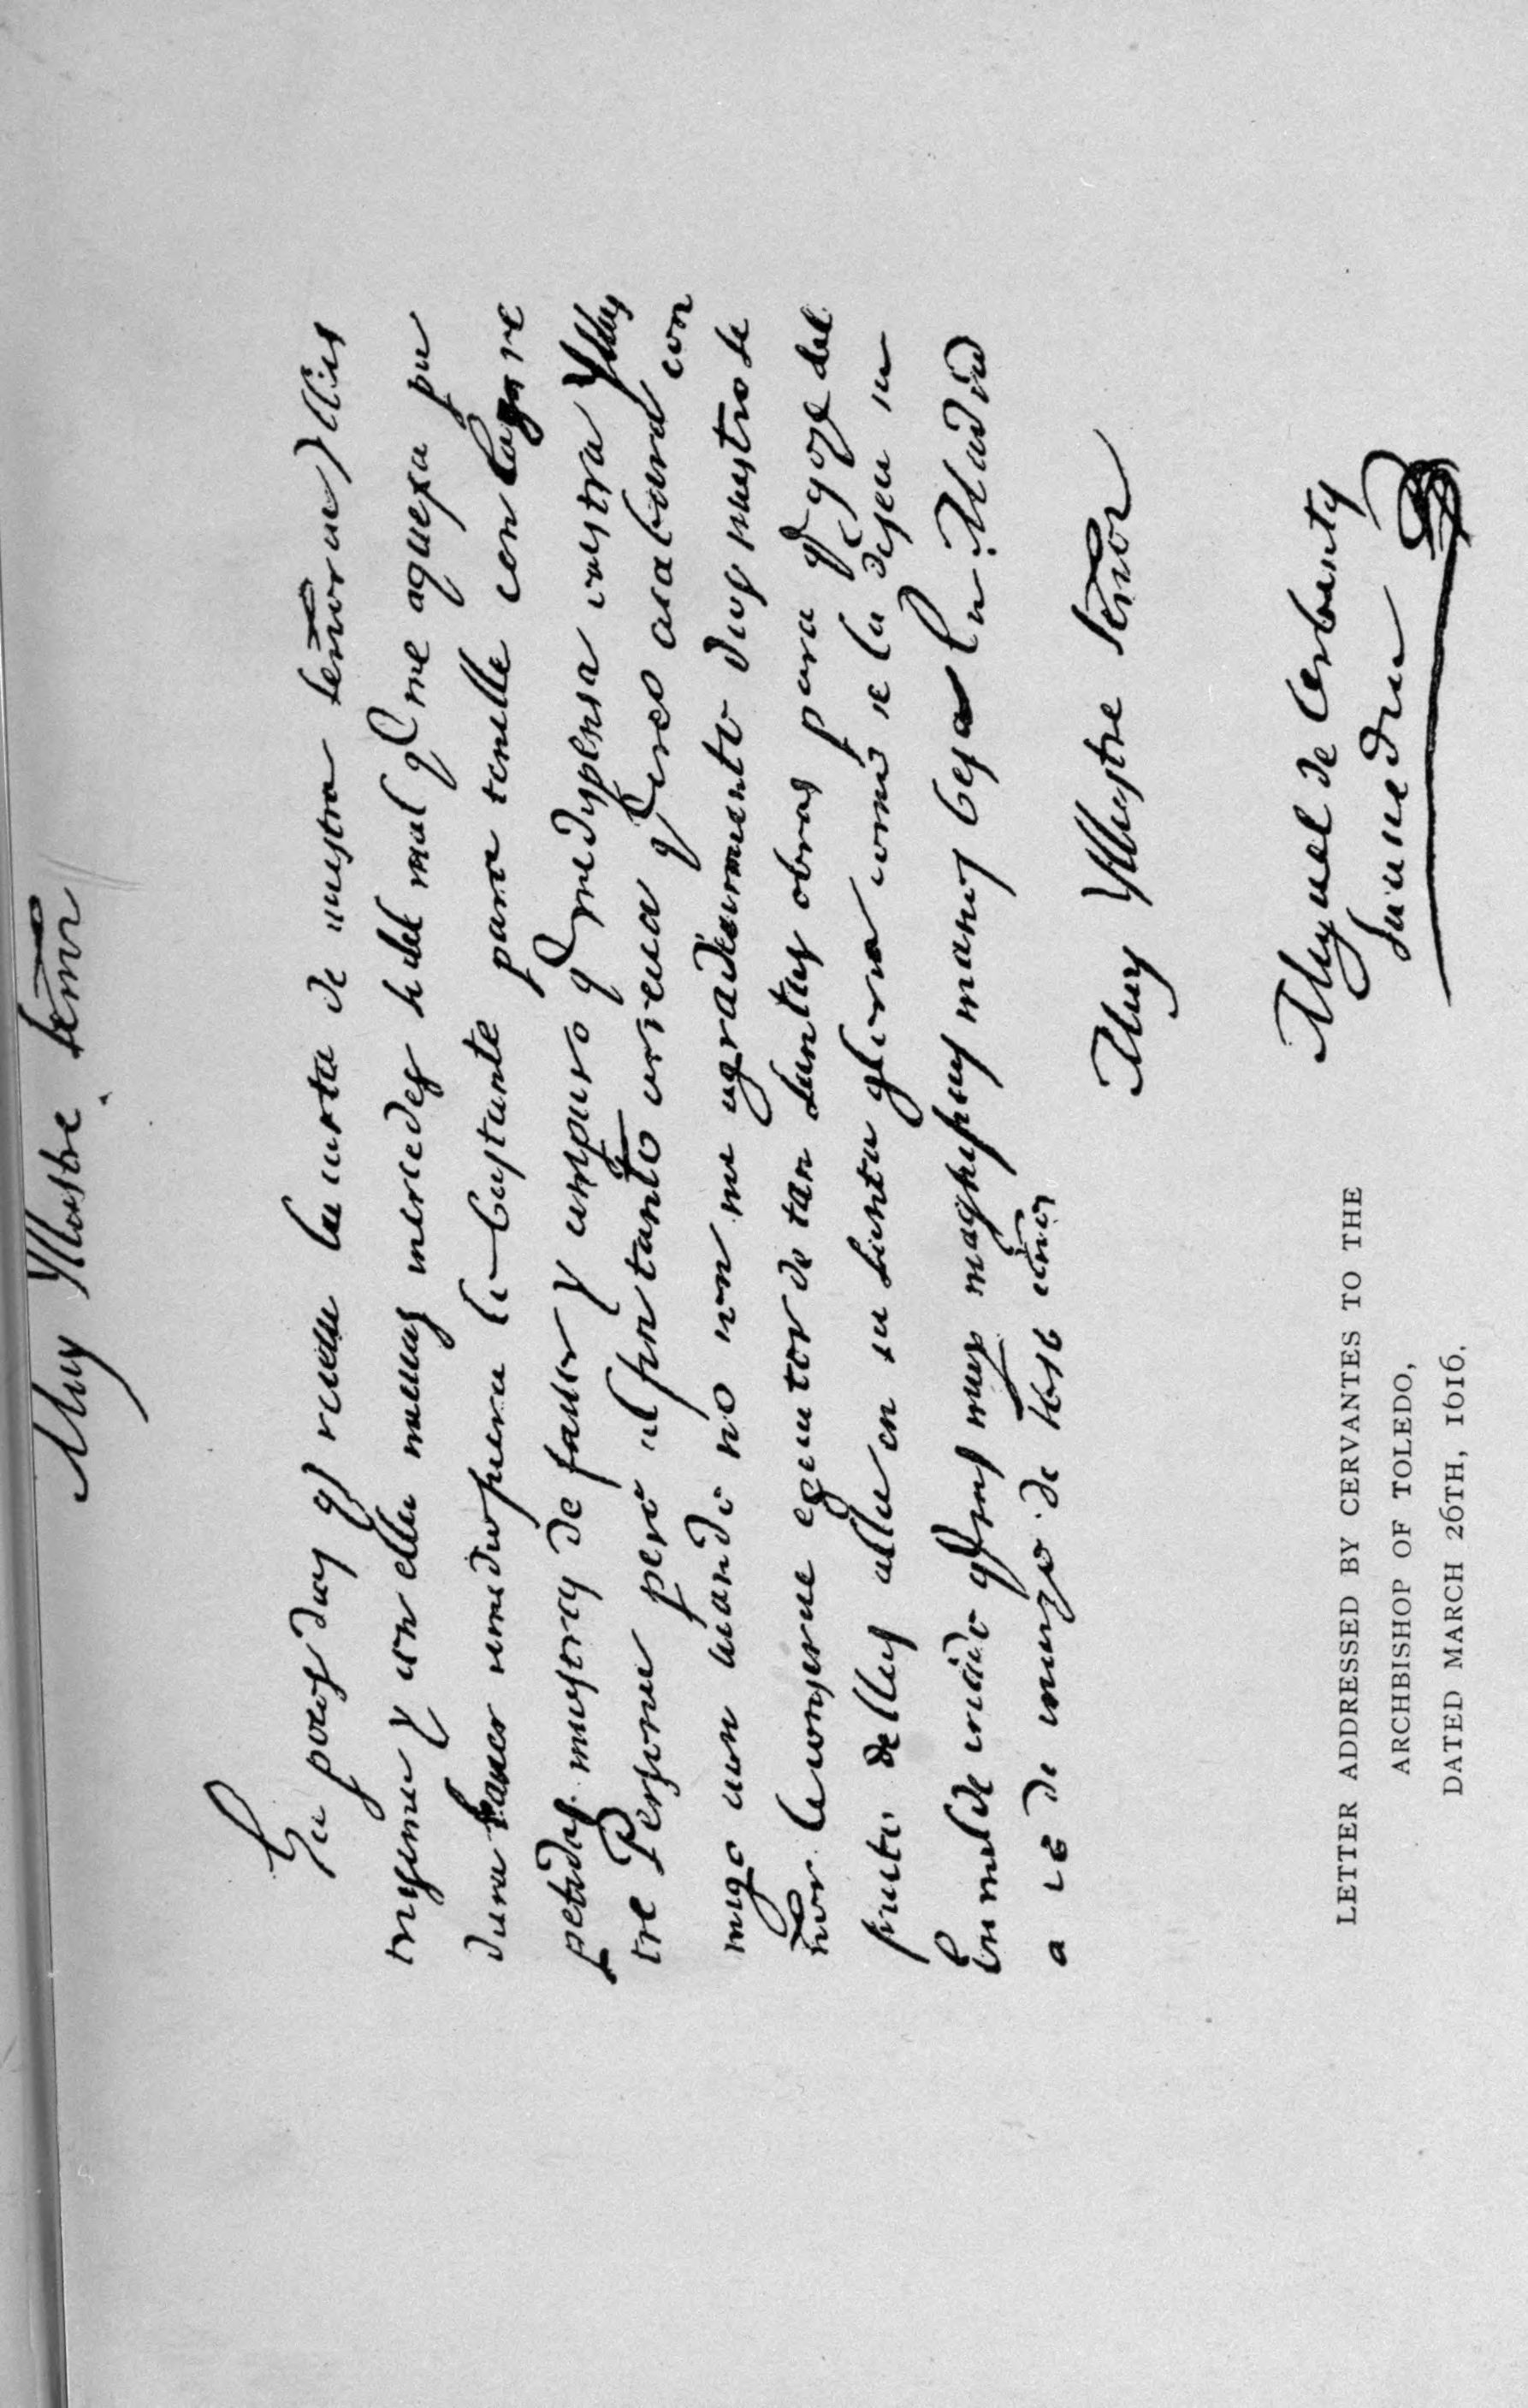 Muy Yllustre señor
Ha pocos dias q̄ recevi la carta de vuestra señoria Yllus
trisima y con ella nuevas mercedes si del mal q̄ me aquexa pu
diera haver remedio fuera lo bastante para tenelle con las re
petidas muestras de favor y amparo q̄ me dispensa vuestra Yllus
tre Persona pero al fin tanto arrecia q̄ creo acabará con
migo aun cuando no con mi agradecimiento dios nuestro se
ñor le conserve egecutor de tan santas obras para q̄ goze del
fruto dellas alla en su santa gloria como se la desea su
humilde criado q̄ sus muy magnificas manos besa En Madrid
a 26 de marzo de 1616 años
Muy Yllustre Señor
Miguel de Cerbantes
Saavedra
LETTER ADDRESSED BY CERVANTES TO THE
ARCHBISHOP OF TOLEDO,
DATED MARCH 26TH, 1616.